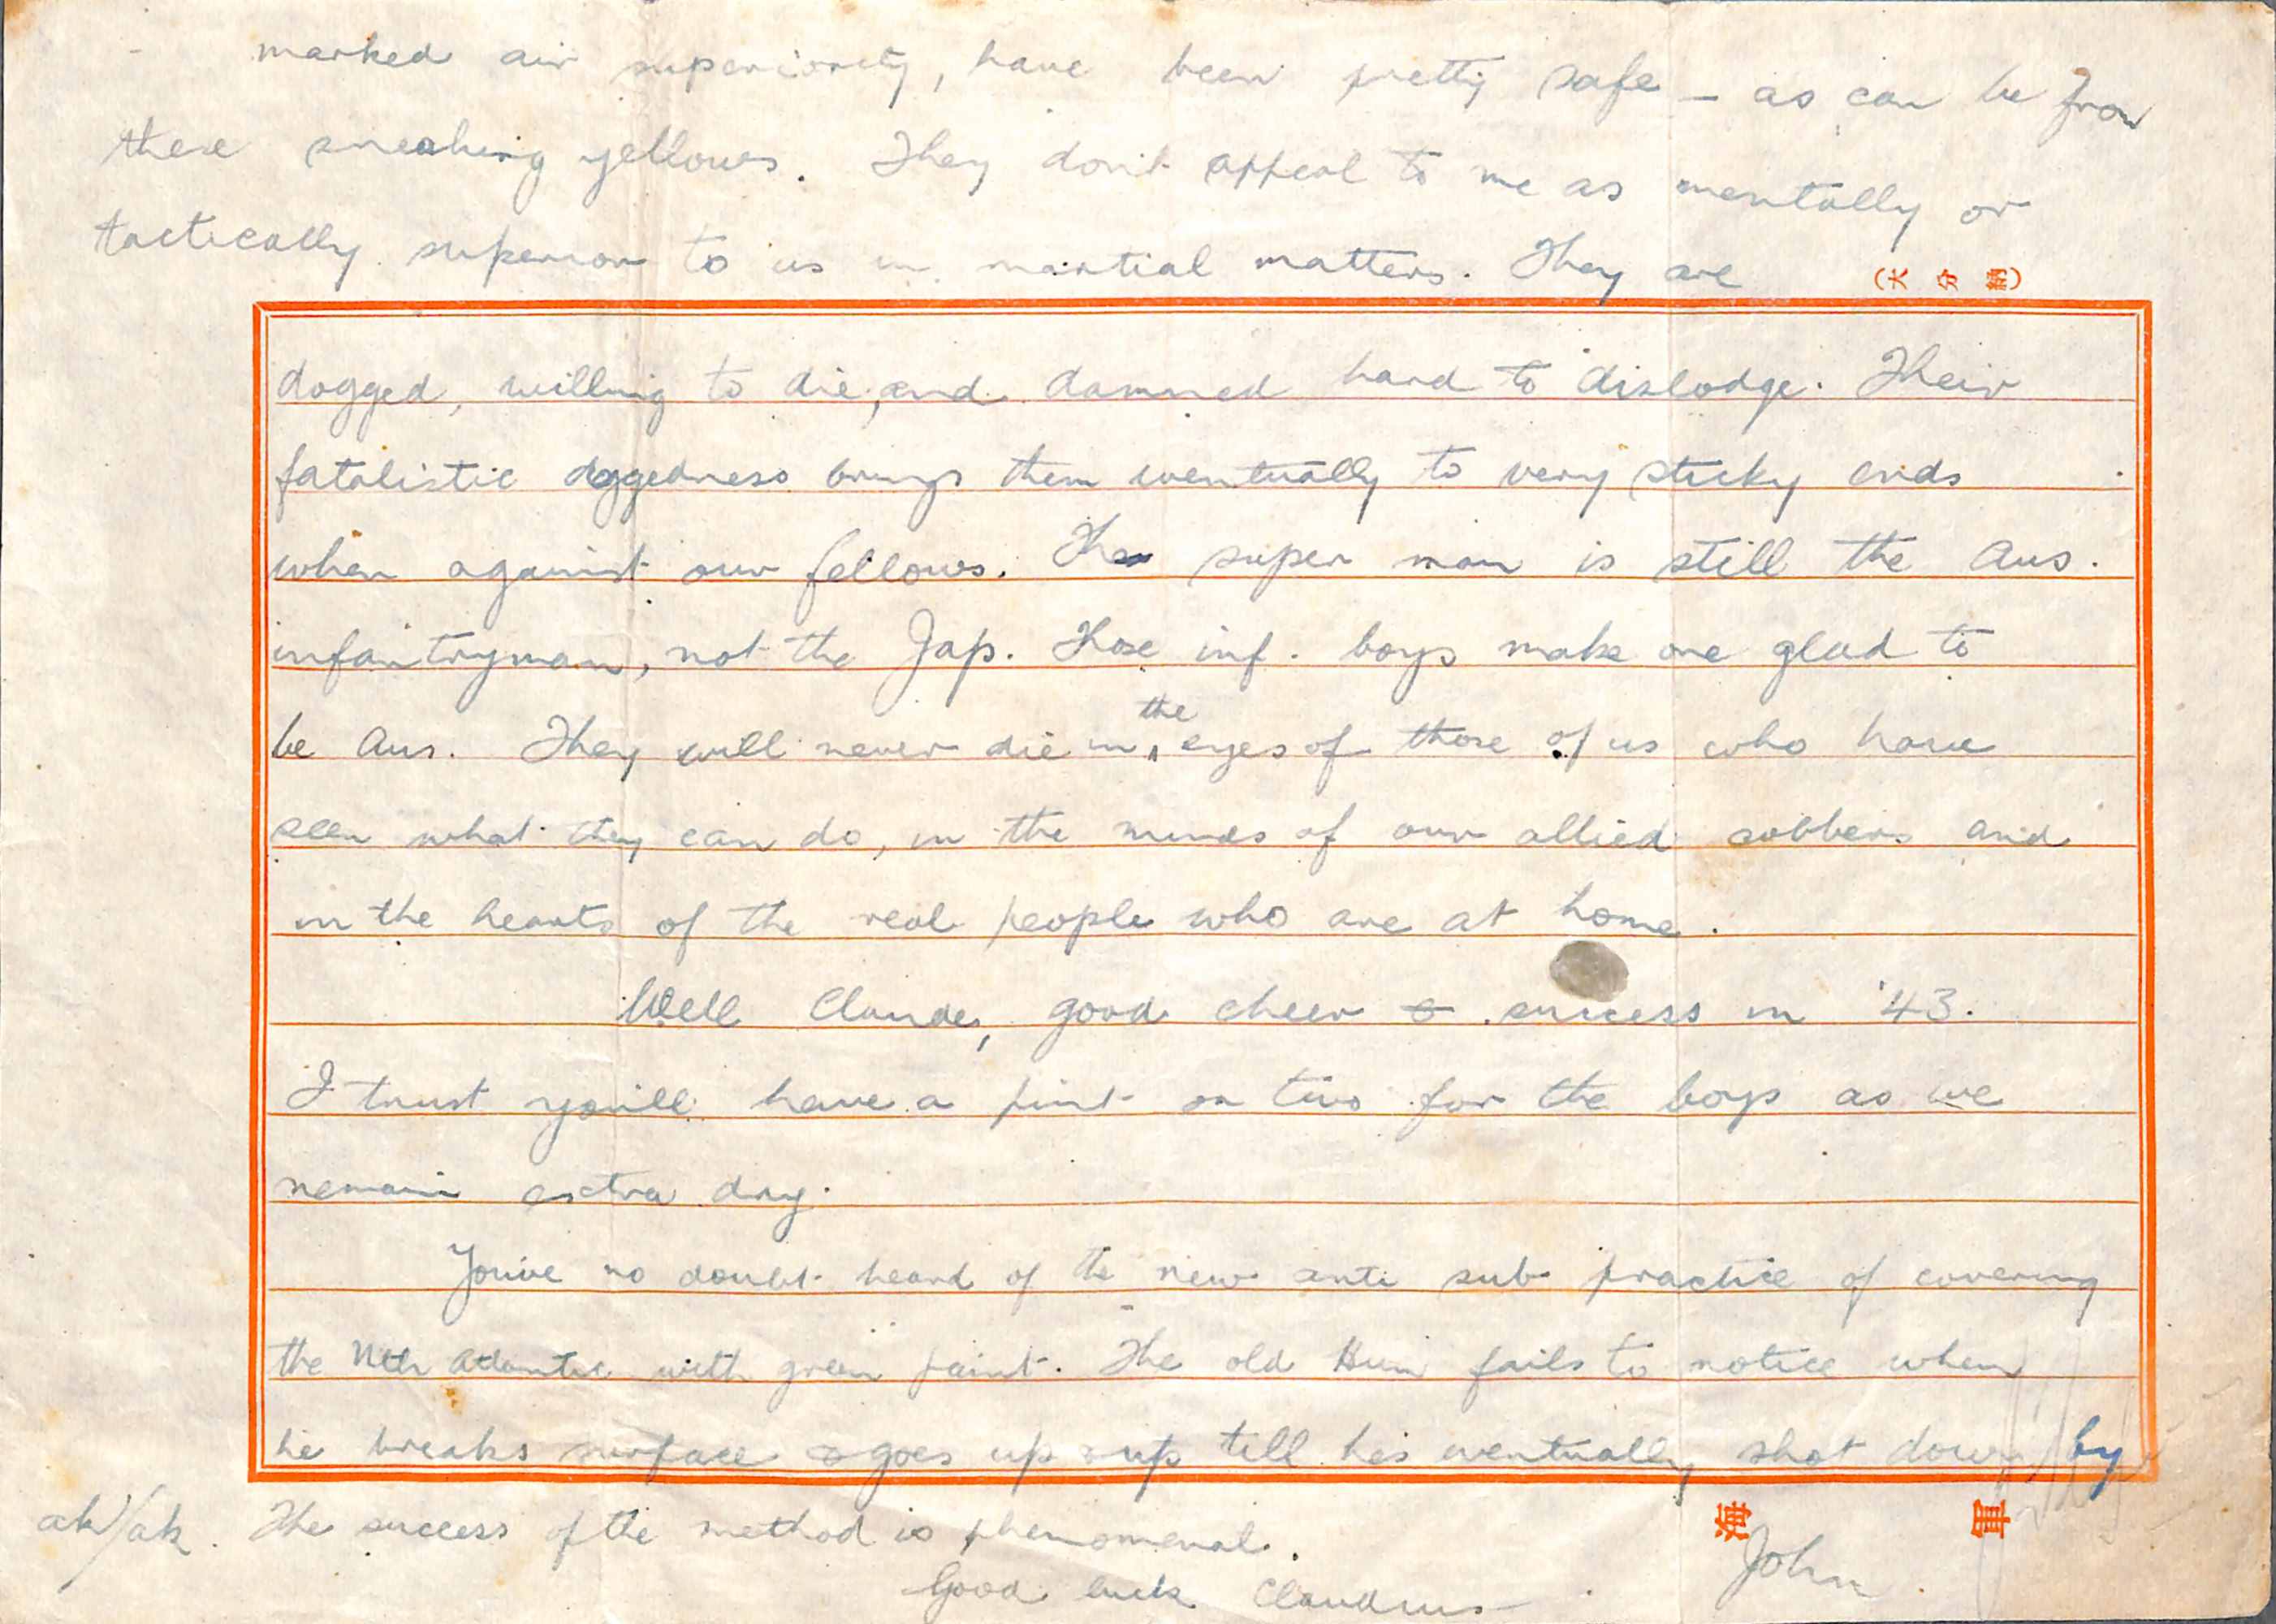 marked air superiority, have been pretty safe – as can be from
these sneaking yellows. They don't appeal to me as mentally or
tactically superior to us in martial matters. They are
(大分納)
dogged, willing to die, and damned hard to dislodge. Their
fatalistic doggedness brings them eventually to very sticky ends
when against our fellows. The super man is still the Aus.
infantryman, not the Jap. Those inf. boys make one glad to
be Aus. They will never die in the eyes of those of us who have
seen what they can do, in the minds of our allied cobbers and
in the hearts of the real people who are at home.
Well Claude, good cheer & success in '43.
I trust you'll have a pint or two for the boys as we
remain extra dry.
You've no doubt heard of the new anti sub practice of covering
the Nth Atlantic with green paint. The old Hun fails to notice when
he breaks surface & goes up & up till he's eventually shot down by
ak/ak. The success of the method is phenomenal.
海軍
Good luck Claudius
John